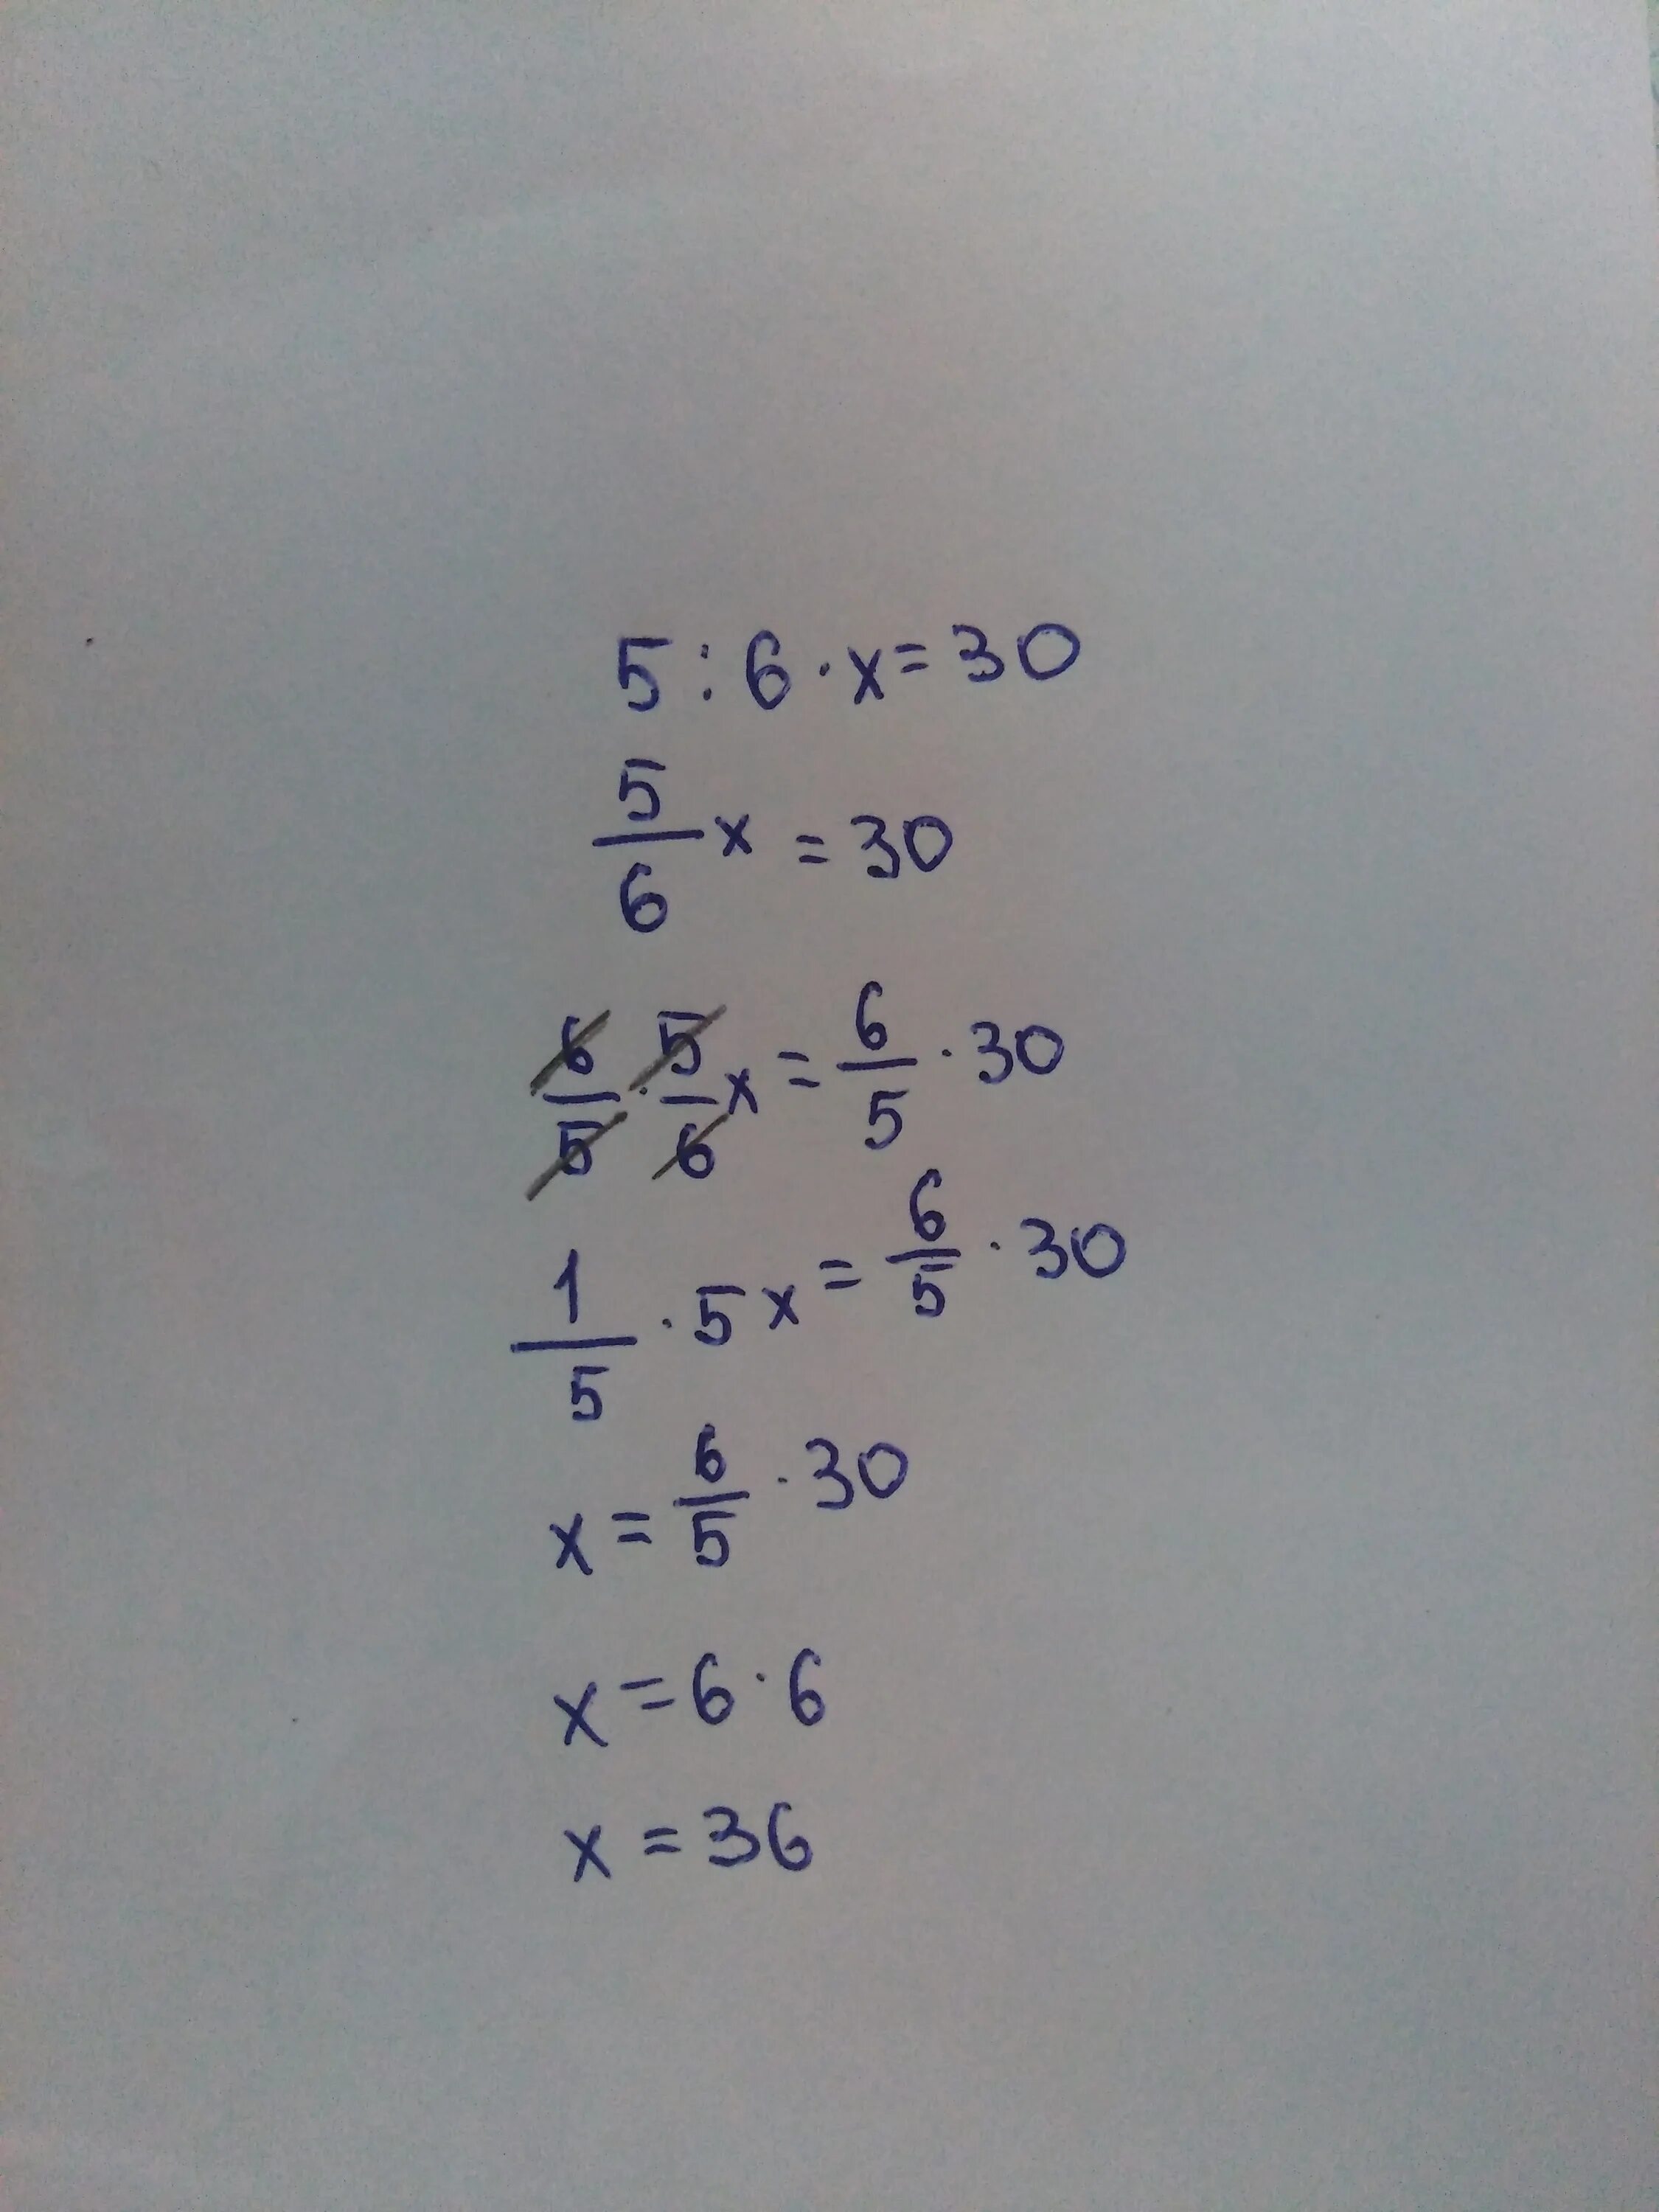 5:6·x=30
5/6 x = 30
6/5 · 5/6 x = 6/5 · 30
1/5 · 5x = 6/5 · 30
x = 6/5 · 30
x = 6·6
x = 36